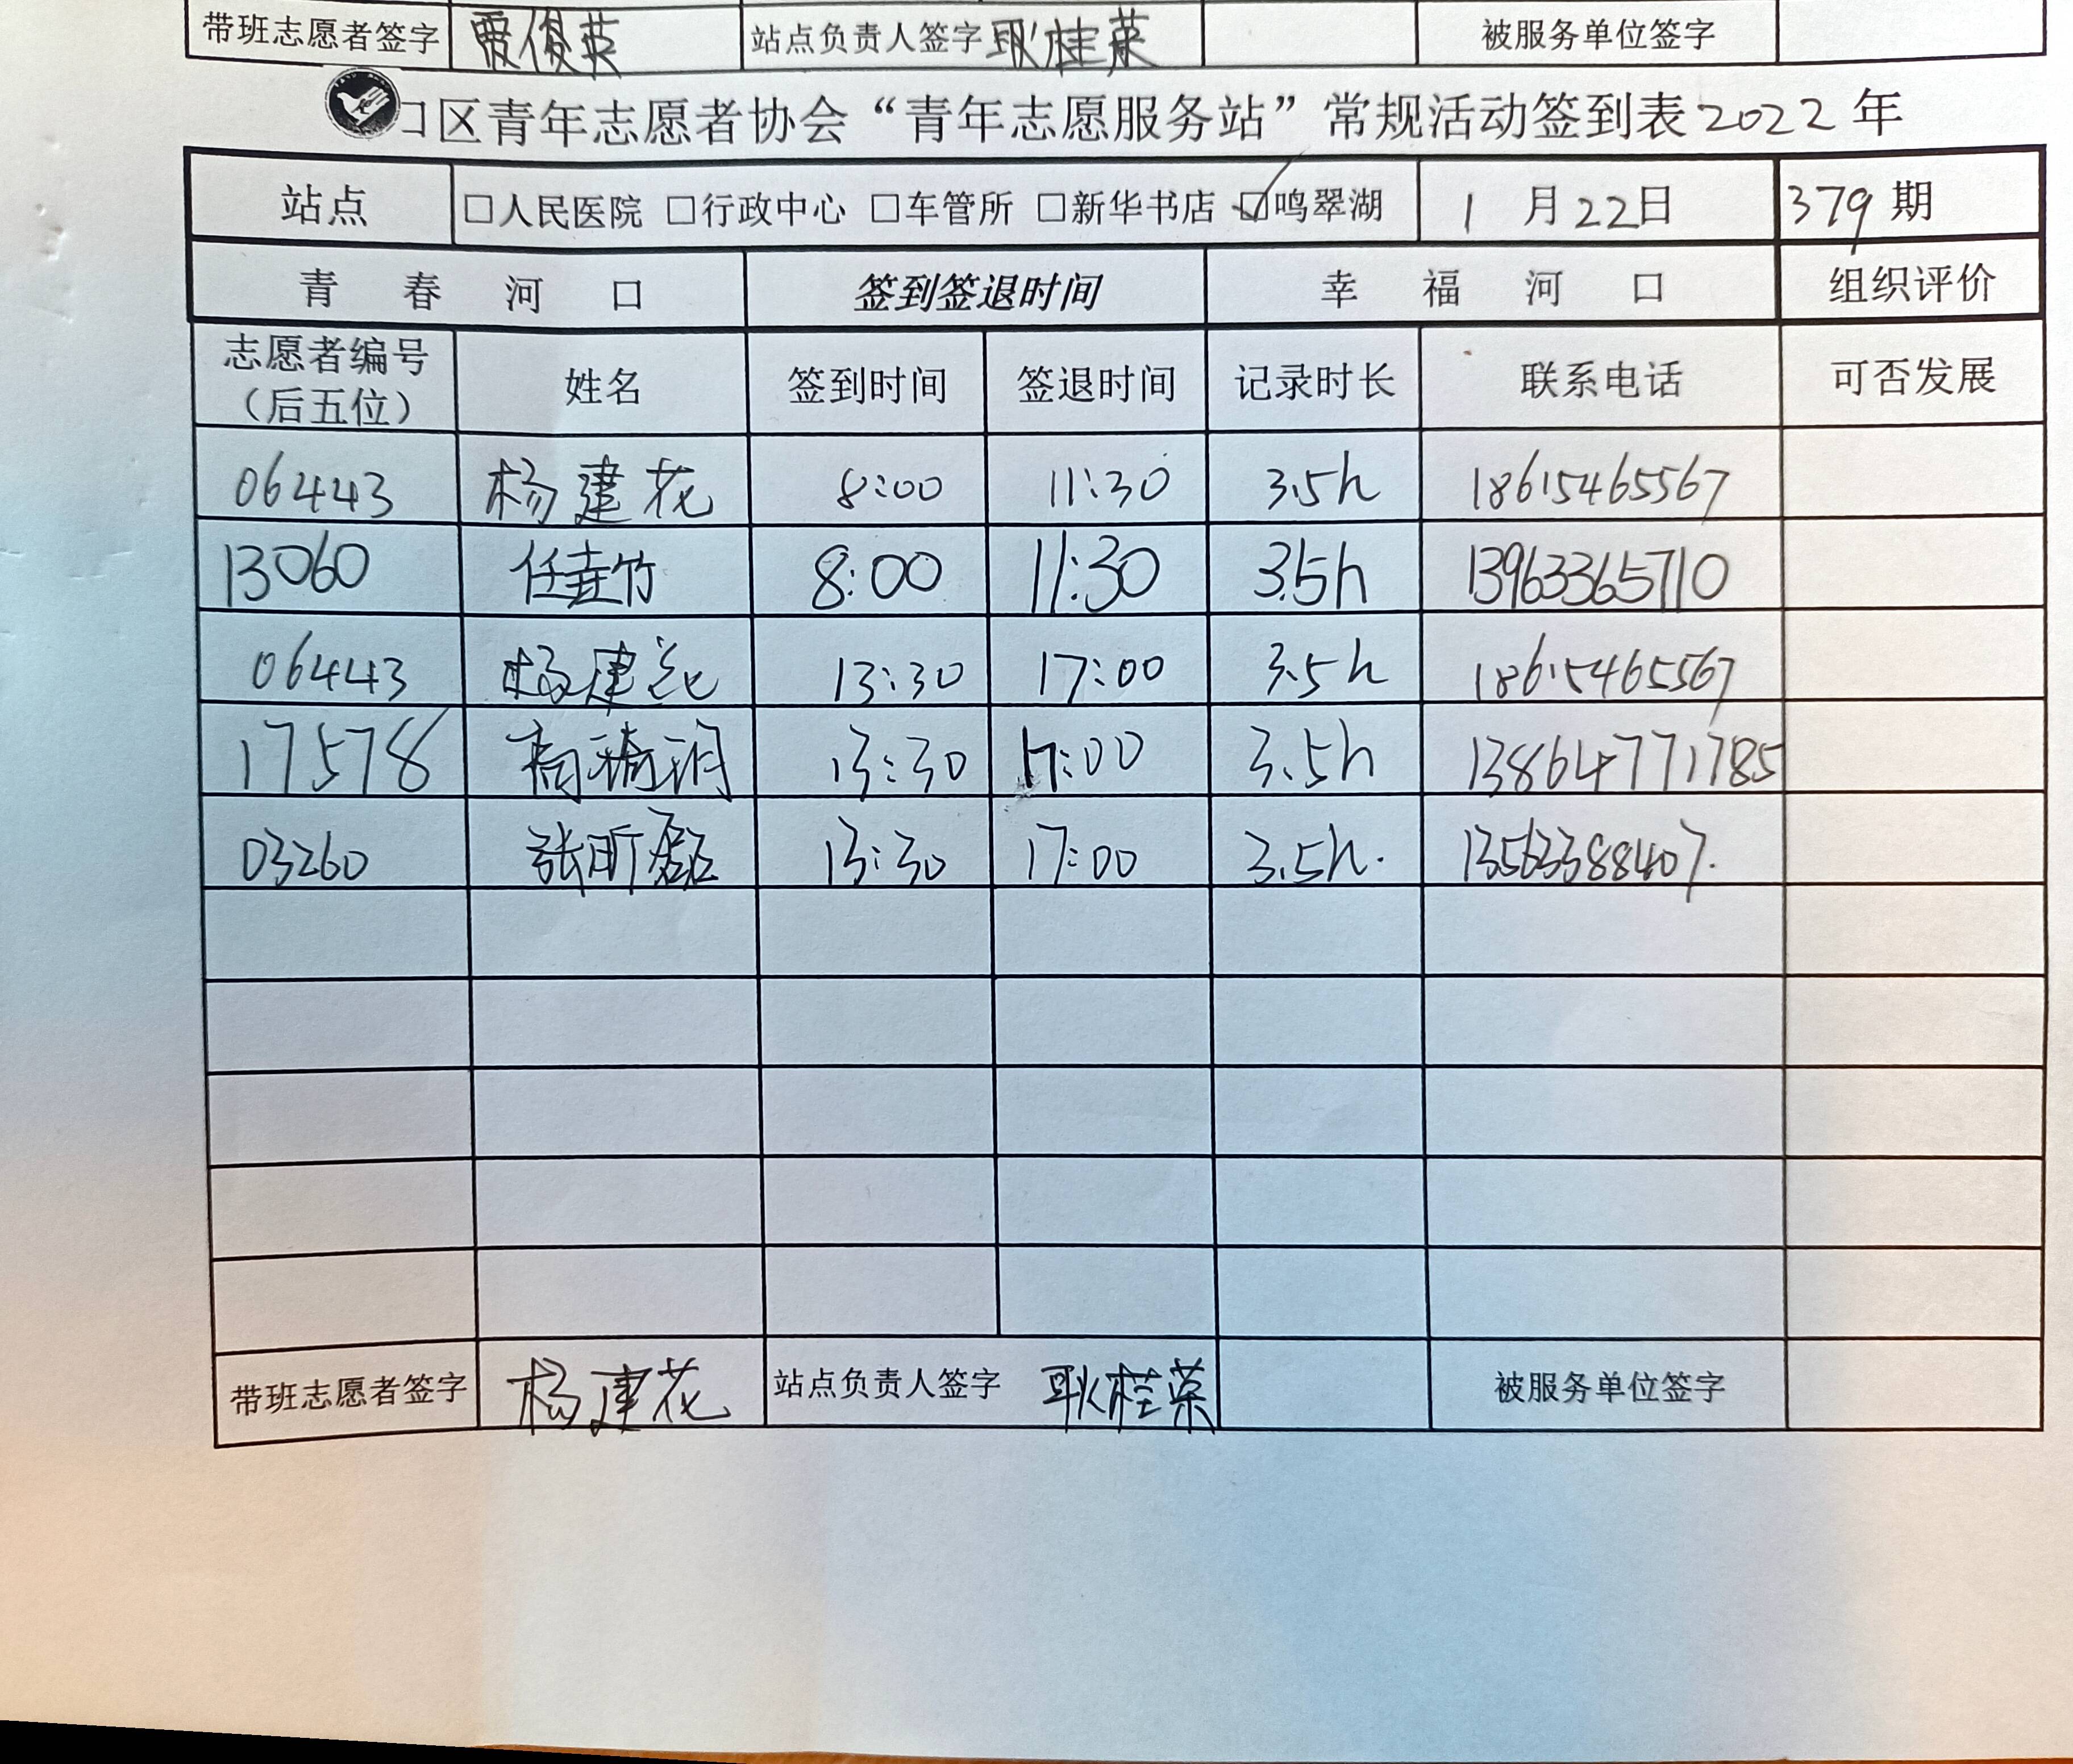 带班志愿者签字 贾俊英 站点负责人签字 耿桂荣 被服务单位签字
口区青年志愿者协会“青年志愿服务站”常规活动签到表2022年
站点 □人民医院 □行政中心 □车管所 □新华书店 ☑鸣翠湖 1月22日 379期
青春河口 签到签退时间 幸福河口 组织评价
志愿者编号
（后五位） 姓名 签到时间 签退时间 记录时长 联系电话 可否发展
06443 杨建花 8:00 11:30 3.5h 18615465567
13060 任垚竹 8:00 11:30 3.5h 13963365710
06443 杨建花 13:30 17:00 3.5h 18615465567
17578 13:30 17:00 3.5h 13864771785
03260 张昕磊 13:30 17:00 3.5h. 13563388407.
带班志愿者签字 杨建花 站点负责人签字 耿桂荣 被服务单位签字